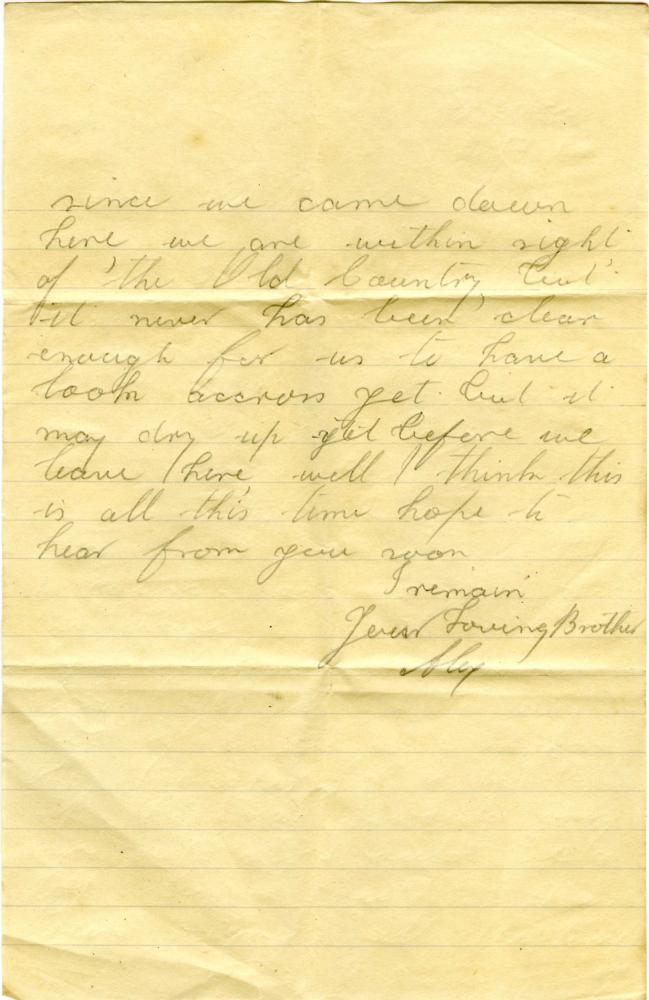 since we came down
here we are within sight
of the Old Country but
it never has been clear
enough for us to have a
look accross yet. but it
may dry up yet before we
leave here well I think this
is all this time hope to
hear from you soon
I remain
Your Loving Brother
Alex